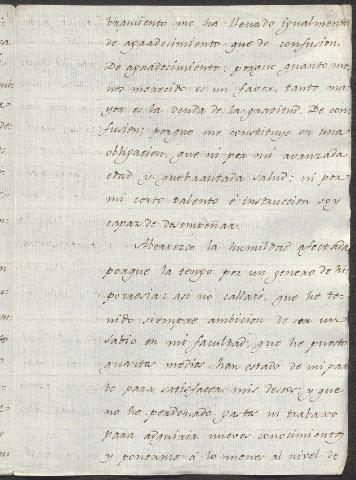 tramiento me ha llenado igualmente
de agradecimiento, que de confusion.
De agradecimiento; porque quanto me-
nos merecido es un favor, tanto ma-
yor es la deuda de la gratitud. De con-
fusion; porque me constituye en una
obligacion, que ni por mi avanzada
edad y quebrantada salud: ni por
mi corto talento e instruccion soy
capaz de desempeñar.
Aborrezco la humildad afectada,
porque la tengo por un genero de hi-
pocresia: asi no callaré, que he te-
nido siempre ambicion de ser un
sabio en mi facultad; que he puesto
quantos medios han estado de mi par-
te para satisfacer mis deseos; y que
no he perdonado gasto ni trabaxo
para adquirir nuevos conocimientos
y ponerme a lo menos al nivel de